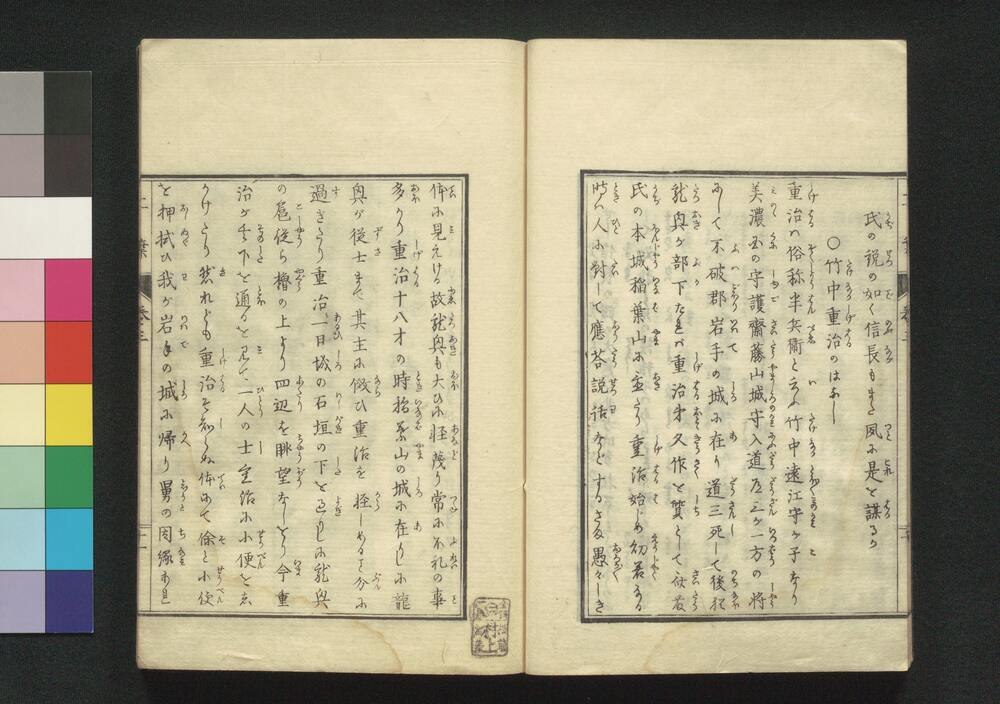 氏の説の如く信長もまた夙に是を謀るか
〇竹中重治のはなし
重治ハ俗称半兵衛と云竹中遠江守が子なり
美濃国の守護齋藤山城守入道道三が一方の将
にして不破郡岩手の城に在り道三死して後猶
龍興が部下たれバ重治弟久作を質として
氏の本城稲葉山に重治始め幼若なる
時ハ人に対して應荅説話などするさま愚々しき
体に見えける故龍興も大ひに軽蔑り常に不礼の事
多かり重治十八才の時稲葉山の城に在りしに龍
興が従士まで其主に傚ひ重治を軽しめる分に
過きたり重治一日城の石垣の下を過りしに龍興
の扈従ら櫓の上より四辺を眺望なしをり今重
治が其下を通るを見て一人の士重治に小便を
かけたり然れども重治そ知らぬ体にて徐と小便
を押拭ひ我が岩手の城に帰り舅の因縁あれ